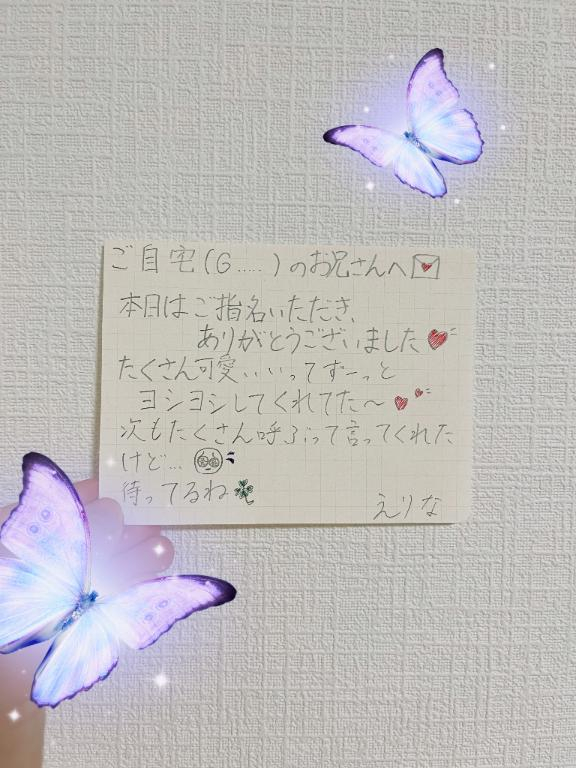 ご自宅(G.....)のお兄さんへ
本日はご指名いただき、
ありがとうございました
たくさん可愛いいってずーっと
ヨシヨシしてくれてた〜
次もたくさん呼ぶって言ってくれた
けど...
待ってるね
えりな